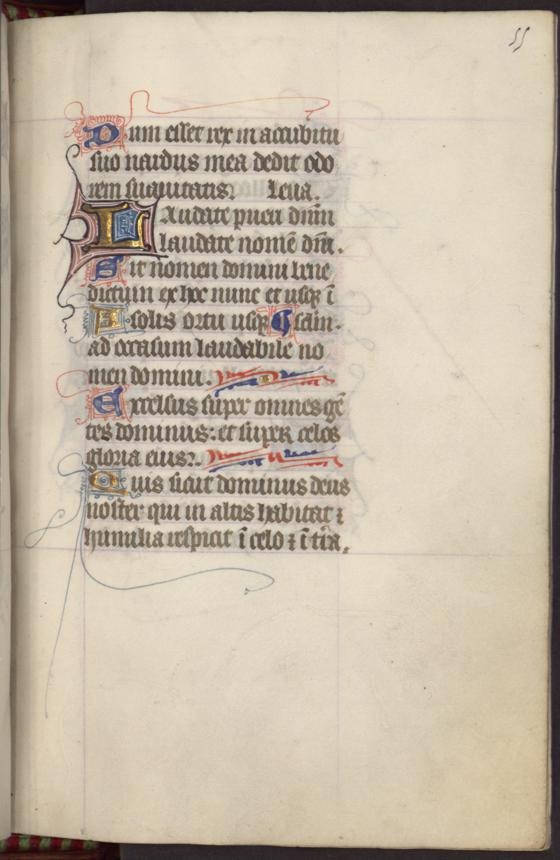 55
Dum esset rex in accubitu
suo nardus mea dedit odo
rem suavitatis. Leua.
Laudate pueri dn̄m
laudate nomē dn̄i.
Sit nomen domini bene
dictum ex hoc nunc et usqꝫ ī
A solis ortu usqꝫ scl̄m.
ad occasum laudabile no
men domini.
Excelsus super omnes gē
tes dominus: et super celos
gloria eius.
Quis sicut dominus deus
noster qui in altis habitat ⁊
humilia respicit ī celo ⁊ ī tr̄a.